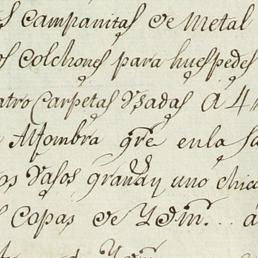 s campanitas de metal
os colchones para huespedes
atro carpetas vsadas á 4
Alfombra gře en la sa
os vasos grandˢ y uno chic
s copas de Ydm... á